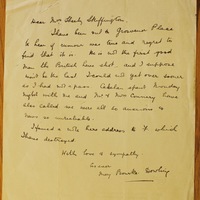 Dear Mrs Sheehy Skeffington
I have been out to Grosvenor Place
to hear if rumour was true and regret to
find that it is. He is not the first good
man the British have shot, and I suppose
wont be the last. I would not get over sooner
as I had not a pass.
night with me and Mr & Mrs
also called we were all so anxious to
have so unreliable.
I found a note here address to F. which
I have destroyed.
With love & sympathy
Mary Bourke Dowling